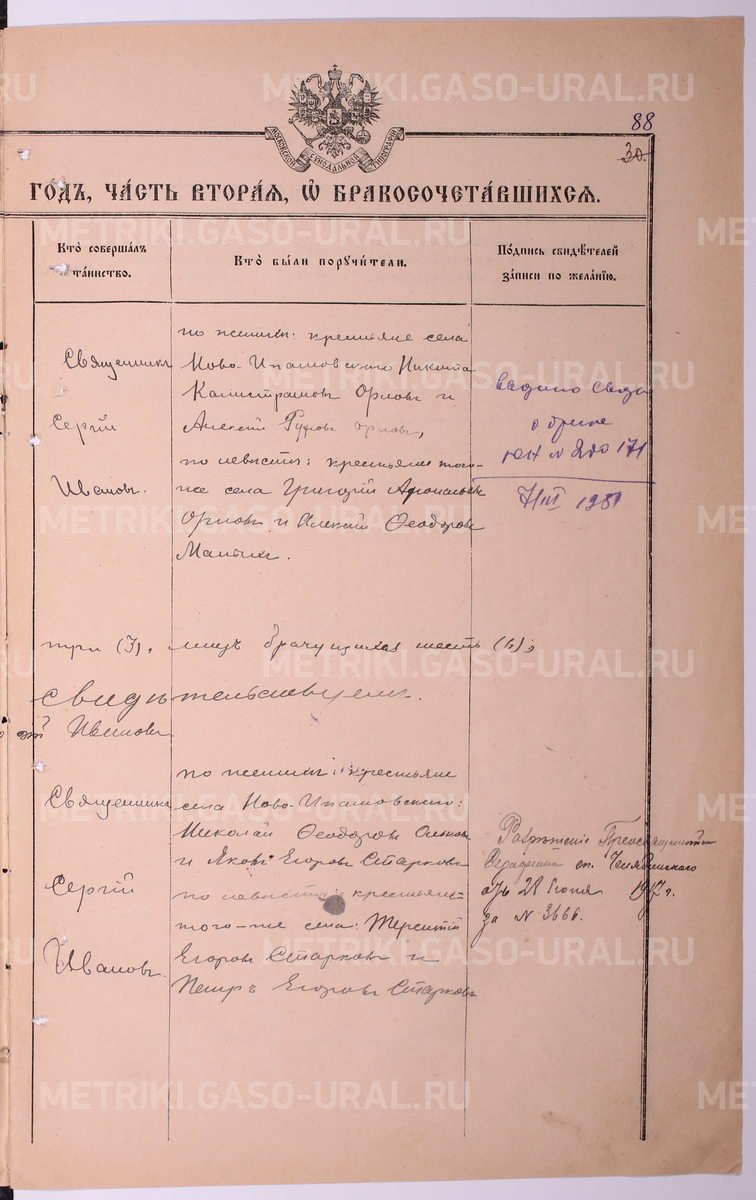 88
30.
МОСКОВСКОЙ СУНОДАЛЬНОЙ ТИПОГРАФІИ
ГОДЪ, ЧА́СТЬ ВТОРА́Я, Ѽ БРАКОСОЧЕТА́ВШИХСЯ.
Кто̀ соверша́лъ та́инство.
Кто̀ бы́ли поручи́тели.
По́дпись свидѣ́телей за́писи по жела́нїю.
Священникъ
Сергій
Ивановъ.
по женихѣ: крестьяне села
Ново-Ипатовскаго Никита
Калистратовъ Орловъ и
Алексій Руфовъ Орловъ,
по невѣстѣ: крестьяне того-
же села Григорій
Орловъ и Алексій Ѳеодоровъ
о браке
171
7/III 1981
три (3), лицъ брачущихся шесть (6),
свидѣтельствуемъ.
Ивановъ
Священникъ
Сергій
Ивановъ.
по женихѣ: крестьяне
села Ново-Ипатовскаго:
Николай Ѳеодоровъ
и Яковъ Егоровъ Старковъ
по невѣстѣ крестьяне
того-же села: Терентій
Егоровъ Старковъ и
Петръ Егоровъ Старковъ
Разрѣшеніе Преосвященнаго
Серафима еп. Челябинскаго
отъ 28 Іюня 1917 г.
за № 3666.
METRIKI.GASO-URAL.RU